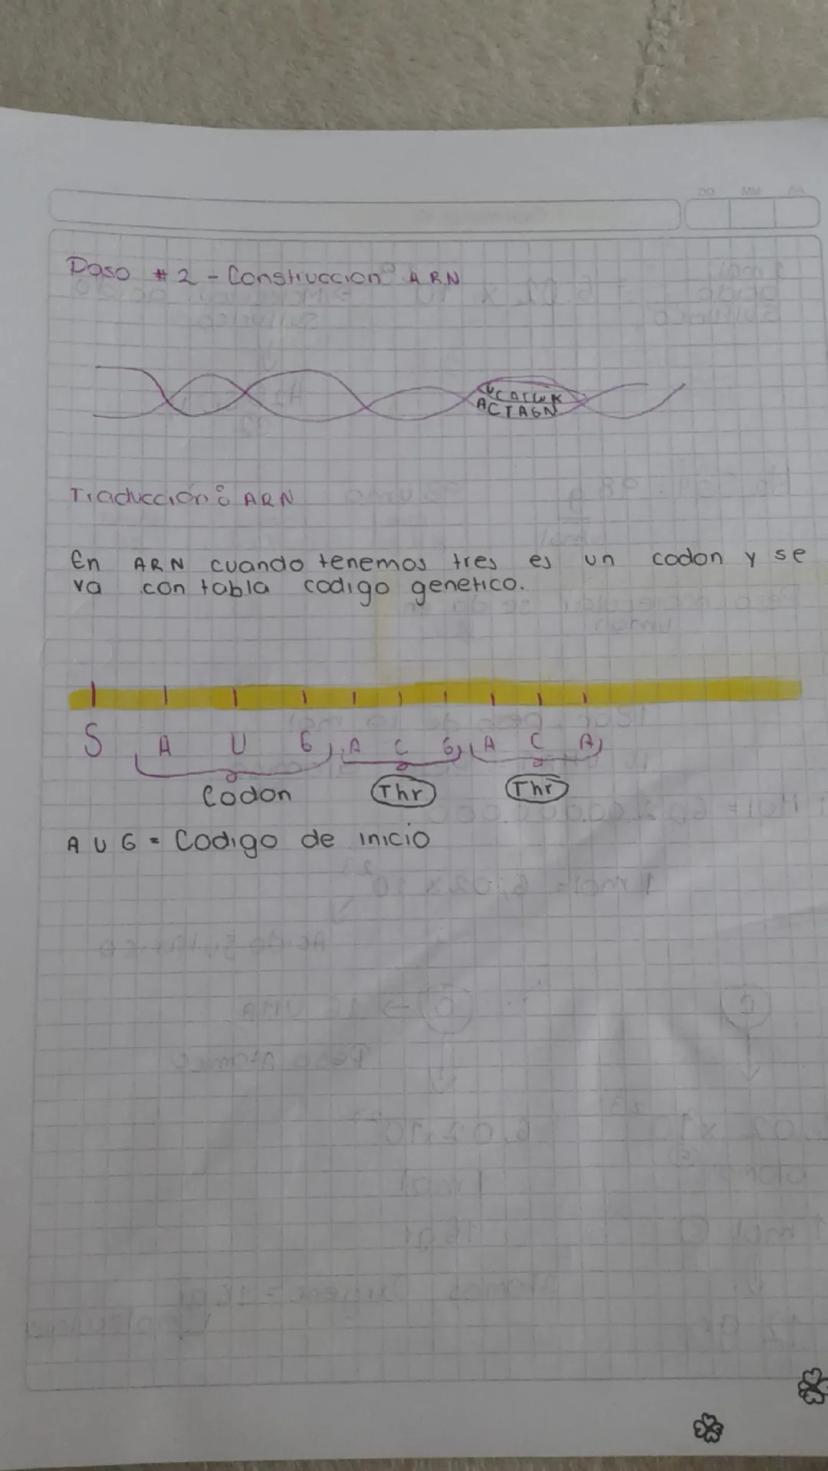 DD MM AA
Paso # 2 - Construccion ARN
ACTAGN
Traducción: ARN
En ARN cuando tenemos tres es un codon y se
va con tabla codigo genetico.
S A U G A C G A C A
Codon Thr Thr
A U G = Codigo de inicio